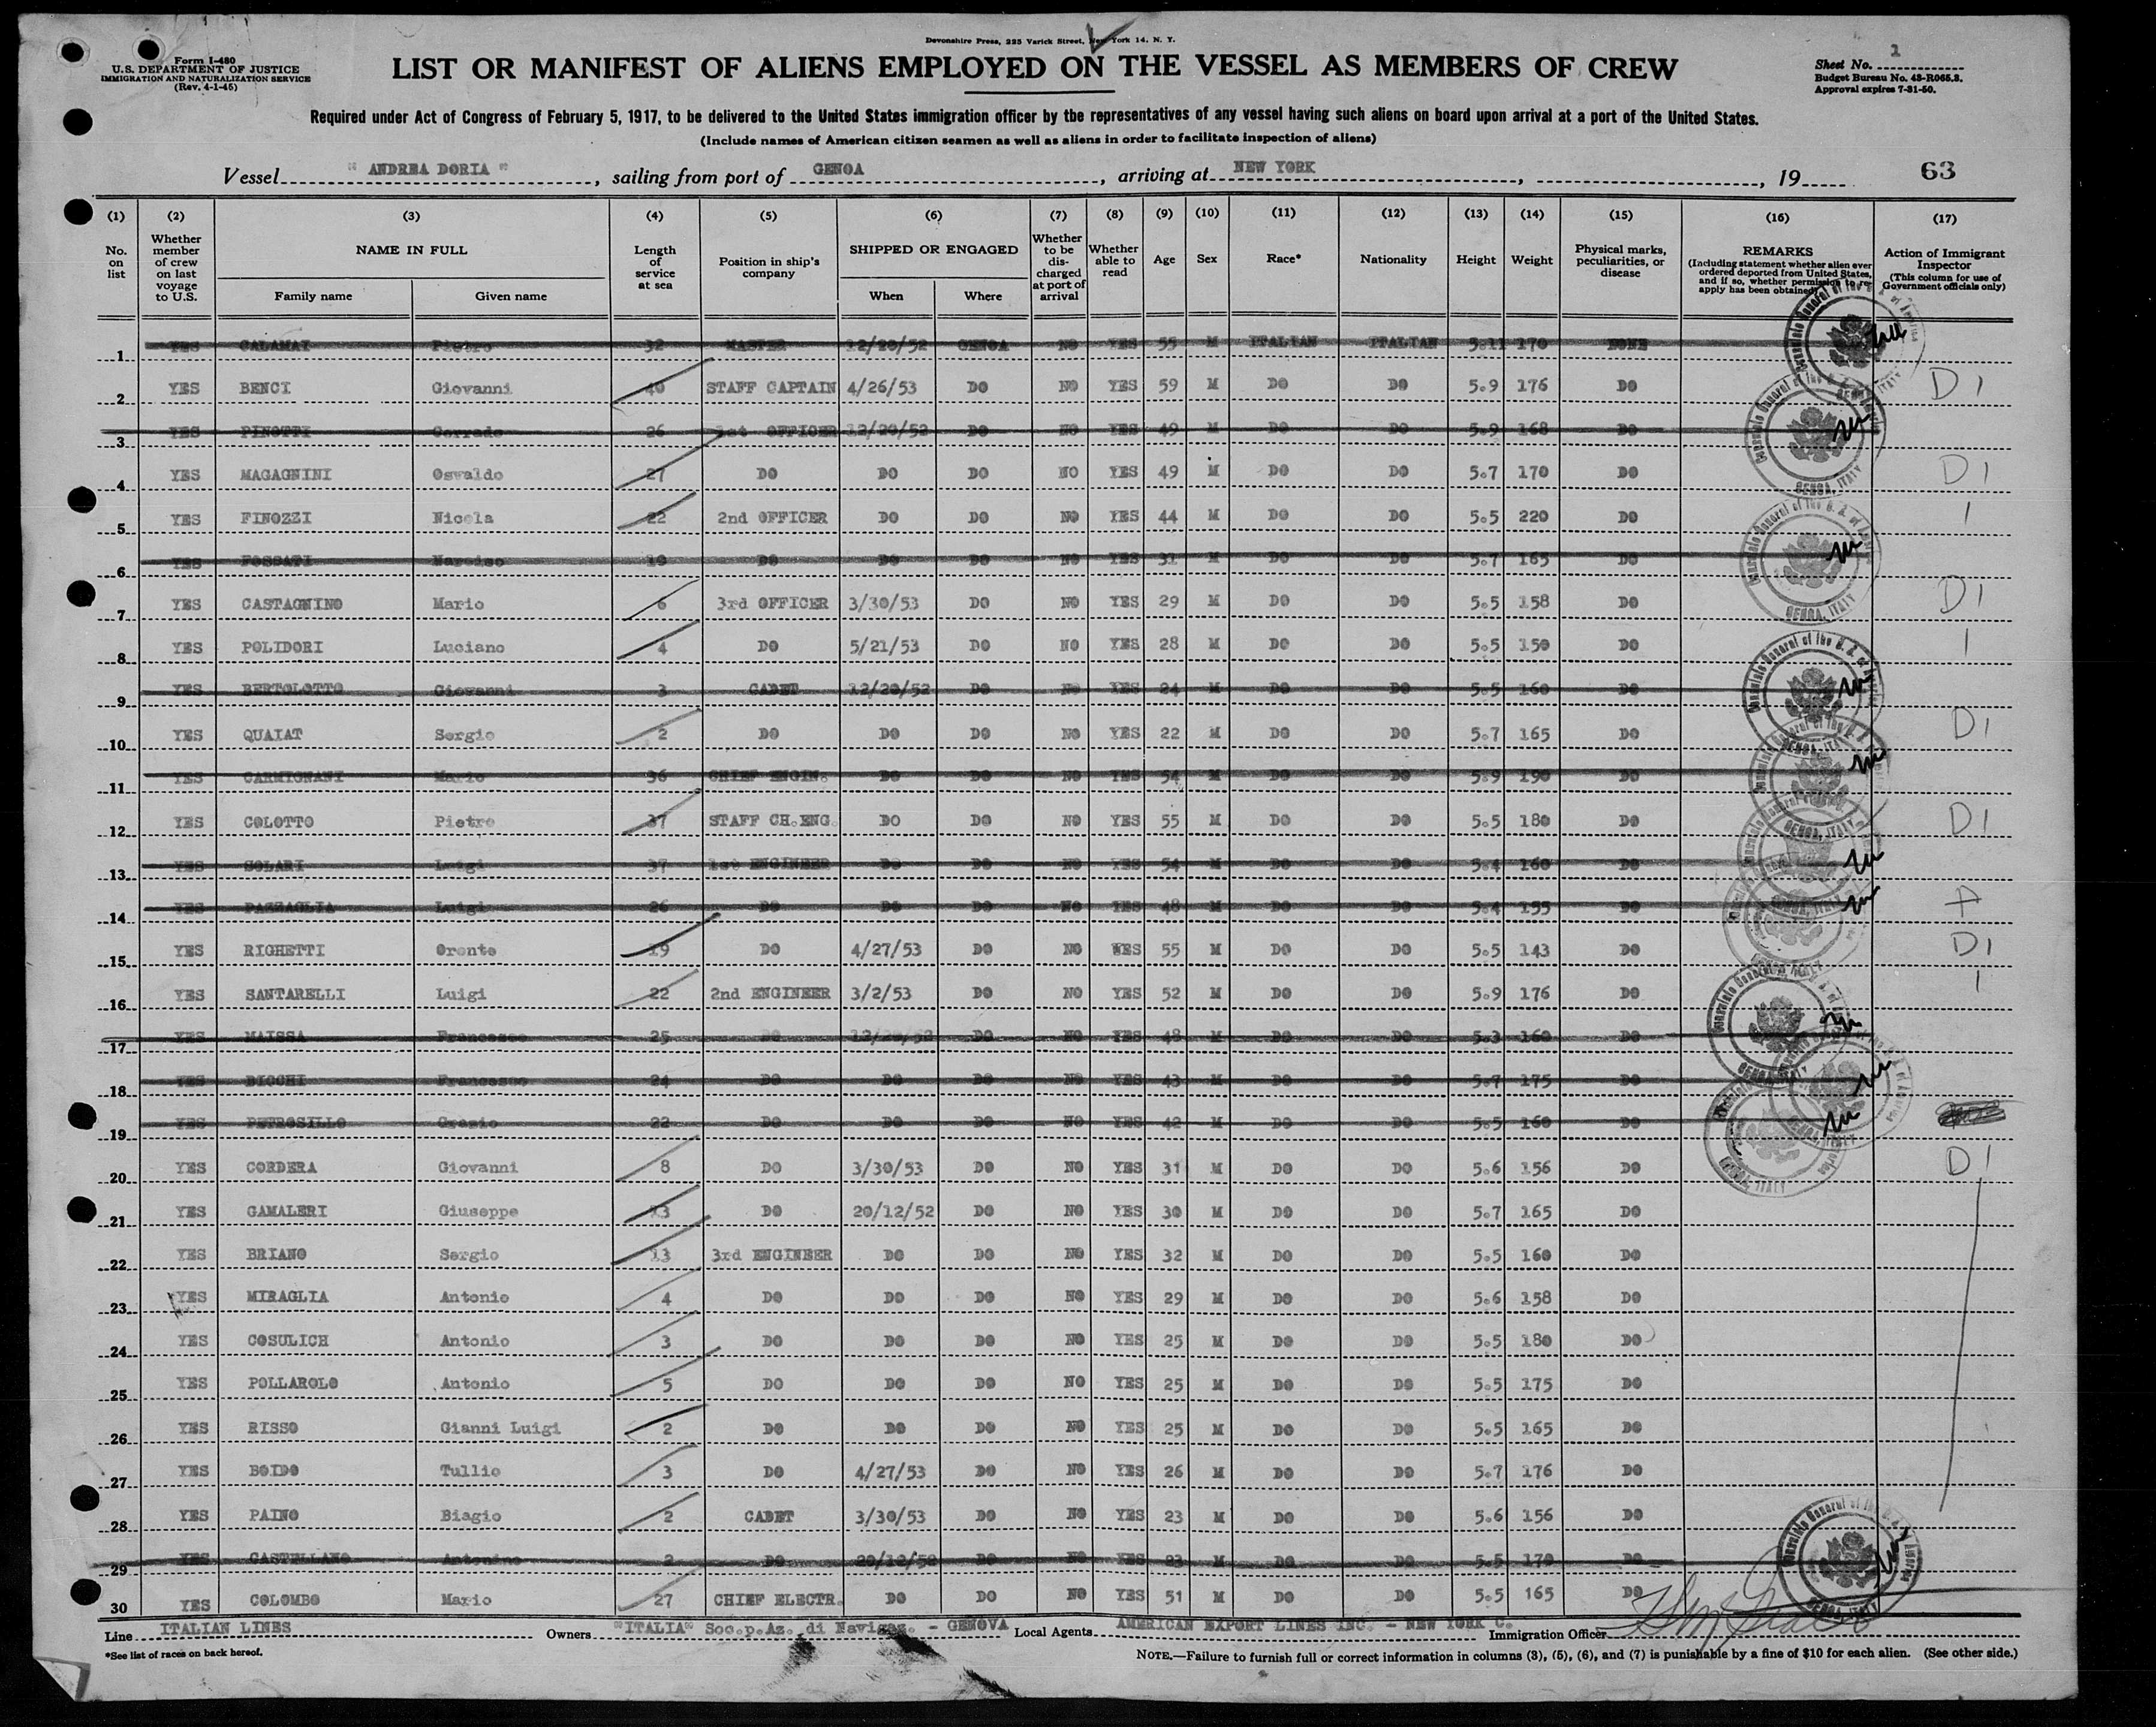 Devonshire Press, 225 Varick Street, New York 14, N. Y.
Form I-480
U.S. DEPARTMENT OF JUSTICE
IMMIGRATION AND NATURALIZATION SERVICE
(Rev. 4-1-45)
LIST OR MANIFEST OF ALIENS EMPLOYED ON THE VESSEL AS MEMBERS OF CREW
Sheet No. 1
Budget Bureau No. 43-R065.3.
Approval expires 7-31-50.
Required under Act of Congress of February 5, 1917, to be delivered to the United States immigration officer by the representatives of any vessel having such aliens on board upon arrival at a port of the United States.
(Include names of American citizen seamen as well as aliens in order to facilitate inspection of aliens)
Vessel "ANDREA DORIA", sailing from port of GENOA, arriving at NEW YORK, , 19 63
(1) (2) (3) (4) (5) (6) (7) (8) (9) (10) (11) (12) (13) (14) (15) (16) (17)
No. on list
Whether member of crew on last voyage to U.S.
NAME IN FULL
Family name Given name
Length of service at sea
Position in ship's company
SHIPPED OR ENGAGED
When Where
Whether to be discharged at port of arrival
Whether able to read
Age
Sex
Race*
Nationality
Height
Weight
Physical marks, peculiarities, or disease
REMARKS
(Including statement whether alien ever ordered deported from United States, and if so, whether permission to reapply has been obtained)
Action of Immigrant Inspector
(This column for use of Government officials only)
1 YES CALAMAI Pietro 32 MASTER 12/20/52 GENOA NO YES 55 M ITALIAN ITALIAN 5.11 170 NONE
2 YES BENCI Giovanni 40 STAFF CAPTAIN 4/26/53 DO NO YES 59 M DO DO 5.9 176 DO D 1
3 YES PINOTTI Corrado 26 1st OFFICER 12/20/52 DO NO YES 49 M DO DO 5.9 168 DO
4 YES MAGAGNINI Oswaldo 27 DO DO DO NO YES 49 M DO DO 5.7 170 DO D 1
5 YES FINOZZI Nicola 22 2nd OFFICER DO DO NO YES 44 M DO DO 5.5 220 DO 1
6 YES FOSSATI Narciso 19 DO DO DO NO YES 31 M DO DO 5.7 165 DO
7 YES CASTAGNINO Mario 6 3rd OFFICER 3/30/53 DO NO YES 29 M DO DO 5.5 158 DO D 1
8 YES POLIDORI Luciano 4 DO 5/21/53 DO NO YES 28 M DO DO 5.5 150 DO 1
9 YES BERTOLOTTO Giovanni 3 CADET 12/20/52 DO NO YES 24 M DO DO 5.5 160 DO
10 YES QUAIAT Sergio 2 DO DO DO NO YES 22 M DO DO 5.7 165 DO D 1
11 YES CARMIGNANI Mario 36 CHIEF ENGIN. DO DO NO YES 54 M DO DO 5.9 190 DO
12 YES COLOTTO Pietro 37 STAFF CH.ENG. DO DO NO YES 55 M DO DO 5.5 180 DO D 1
13 YES SOLARI Luigi 37 1st ENGINEER DO DO NO YES 54 M DO DO 5.4 160 DO
14 YES PAZZAGLIA Luigi 26 DO DO DO NO YES 48 M DO DO 5.4 155 DO A
15 YES RIGHETTI Oronte 19 DO 4/27/53 DO NO WES 55 M DO DO 5.5 143 DO D 1
16 YES SANTARELLI Luigi 22 2nd ENGINEER 3/2/53 DO NO YES 52 M DO DO 5.9 176 DO 1
17 YES MAISSA Francesco 25 DO 12/20/52 DO NO YES 48 M DO DO 5.3 160 DO
18 YES BICCHI Francesco 24 DO DO DO NO YES 43 M DO DO 5.7 175 DO
19 YES PETROSILLO Grazio 22 DO DO DO NO YES 42 M DO DO 5.5 160 DO
20 YES CORDERA Giovanni 8 DO 3/30/53 DO NO YES 31 M DO DO 5.6 156 DO D 1
21 YES GAMALERI Giuseppe 13 DO 20/12/52 DO NO YES 30 M DO DO 5.7 165 DO
22 YES BRIANO Sergio 13 3rd ENGINEER DO DO NO YES 32 M DO DO 5.5 160 DO
23 YES MIRAGLIA Antonio 4 DO DO DO NO YES 29 M DO DO 5.6 158 DO
24 YES COSULICH Antonio 3 DO DO DO NO YES 25 M DO DO 5.5 180 DO
25 YES POLLAROLO Antonio 5 DO DO DO NO YES 25 M DO DO 5.5 175 DO
26 YES RISSO Gianni Luigi 2 DO DO DO NO YES 25 M DO DO 5.5 165 DO
27 YES BOIDO Tullio 3 DO 4/27/53 DO NO YES 26 M DO DO 5.7 176 DO
28 YES PAINO Biagio 2 CADET 3/30/53 DO NO YES 23 M DO DO 5.6 156 DO
29 YES CASTELLANO Antonino 2 DO 20/12/52 DO NO YES 23 M DO DO 5.5 170 DO
30 YES COLOMBO Mario 27 CHIEF ELECTR. DO DO NO YES 51 M DO DO 5.5 165 DO
Line ITALIAN LINES Owners "ITALIA" Soc.p.Az. di Navigaz. - GENOVA Local Agents AMERICAN EXPORT LINES INC. - NEW YORK C. Immigration Officer
*See list of races on back hereof.
NOTE.—Failure to furnish full or correct information in columns (3), (5), (6), and (7) is punishable by a fine of $10 for each alien. (See other side.)